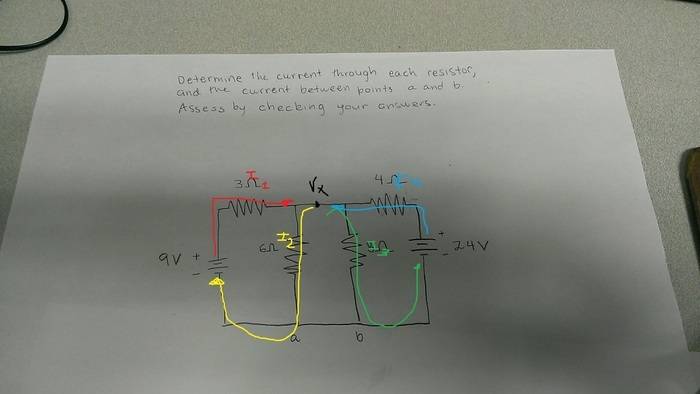 Determine the current through each resistor,
and the current between points a and b.
Assess by checking your answers.
3Ω I1
Vx
4Ω
6Ω I2
I3
9V + -
+ - 24V
a b